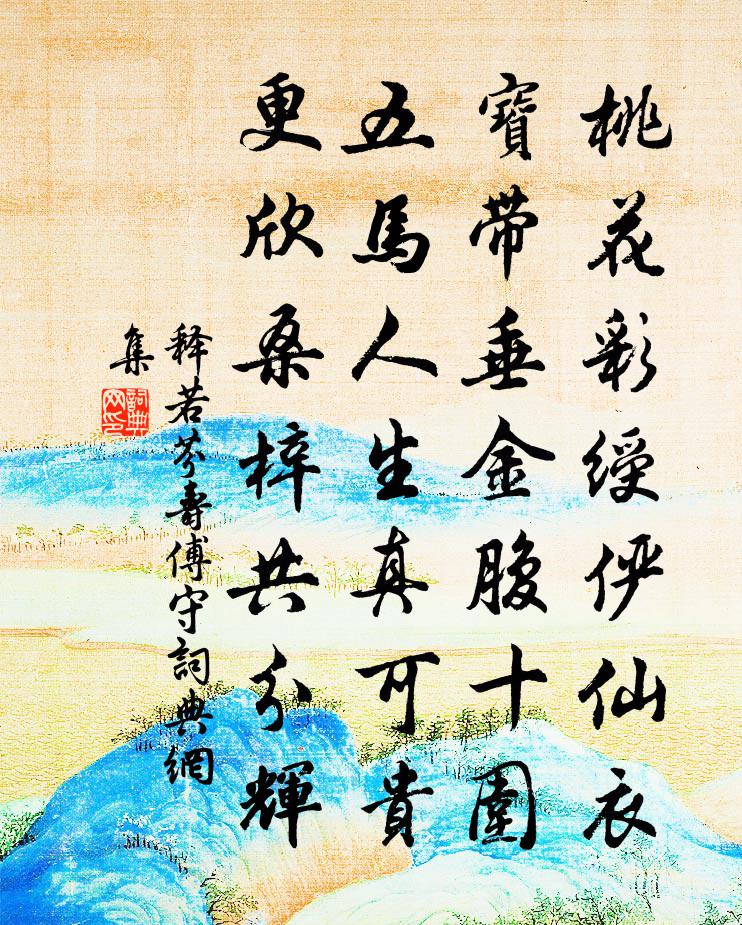 桃花彩綬俨仙衣
寶帶垂金腹十圍
五馬人生真可貴
更欣桑梓共分輝
释若芬壽傅守詞典網
集
詞典
网印